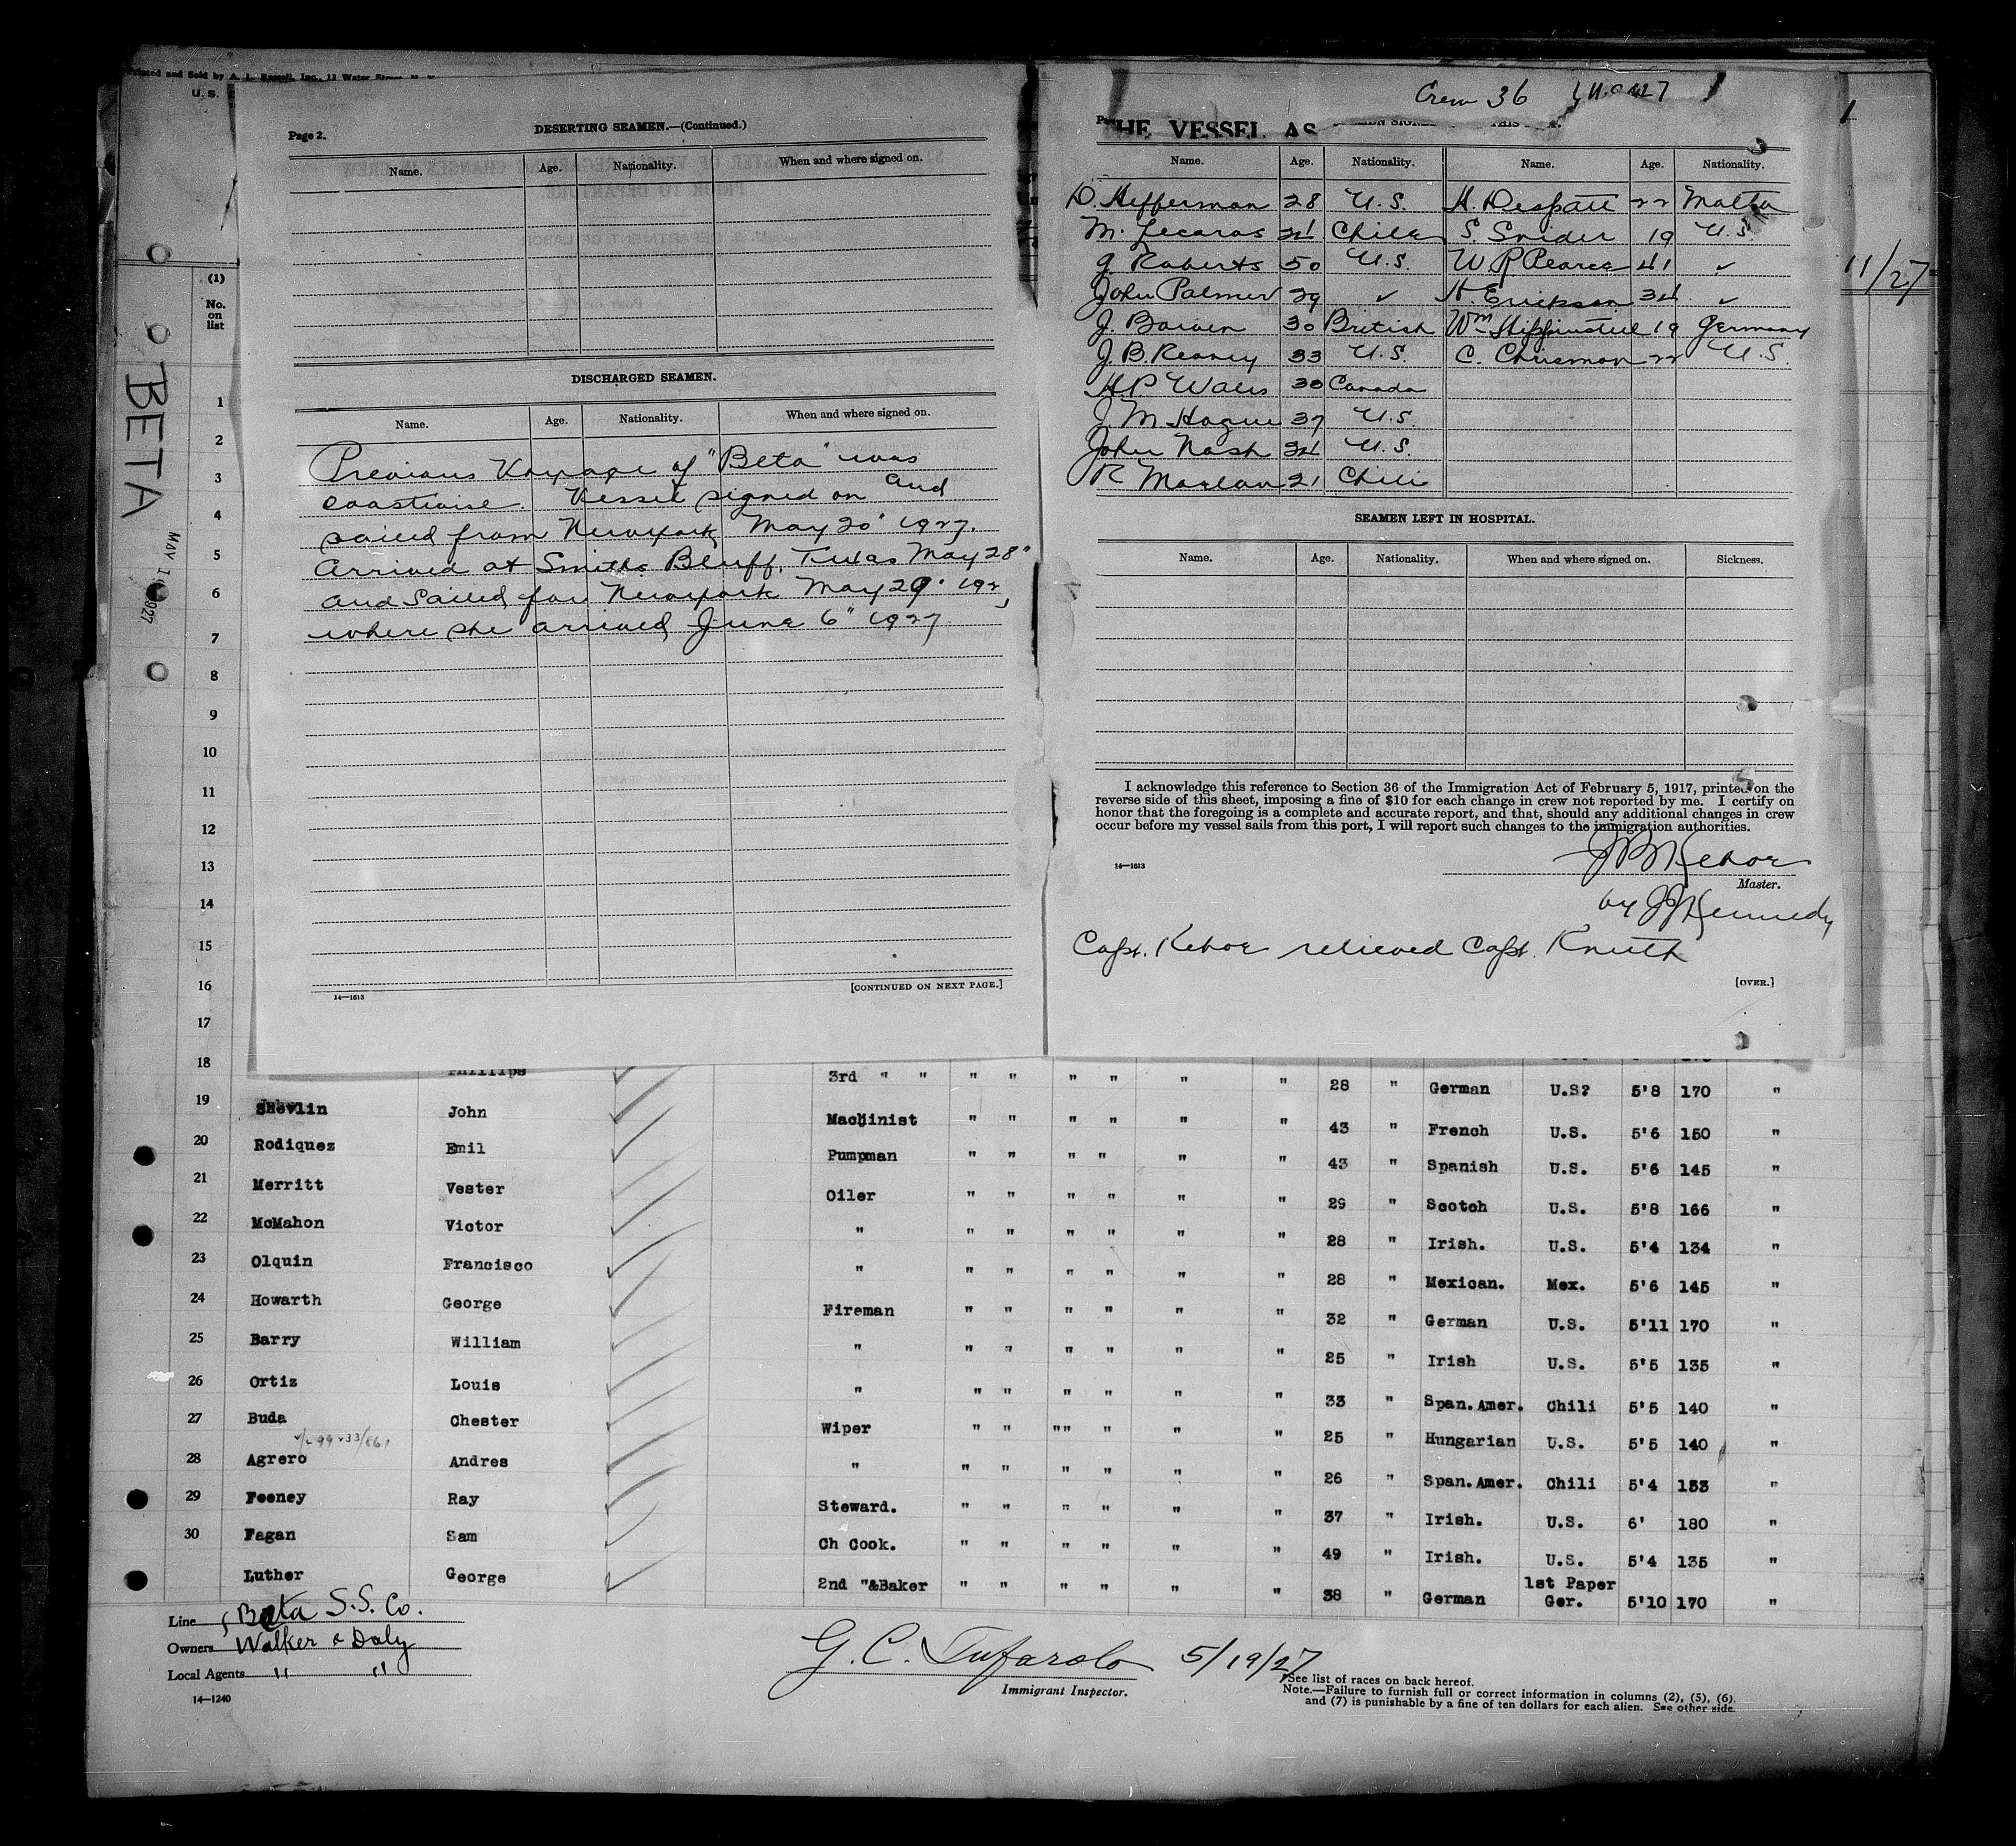 Printed and Sold by A. L. Russell, Inc., 13 Water Street
U. S.
BETA
MAY 1 1927
(1)
No. on list
1
2
3
4
5
6
7
8
9
10
11
12
13
14
15
16
17
18
19
20
21
22
23
24
25
26
27
28
29
30
Page 2.
DESERTING SEAMEN.—(Continued.)
Name. Age. Nationality. When and where signed on.
DISCHARGED SEAMEN.
Name. Age. Nationality. When and where signed on.
Previous Voyage of "Beta" was
coastwise. Vessel signed on and
sailed from Newyork May 20" 1927.
Arrived at Smiths Bluff, Texas May 28"
and Sailed for Newyork May 29" 192
where she arrived June 6" 1927
14—1613
[CONTINUED ON NEXT PAGE.]
Crew 36
HE VESSEL AS
Name. Age. Nationality. Name. Age. Nationality.
D. Hefferman 28 U.S. H. Despatt 22 Malta
M. Lecaros 21 Chile S. Snider 19 U.S.
J. Roberts 50 U.S. W R Pearce 41 ✓
John Palmer 29 ✓ H. Erickson 34 ✓
J. Bowen 30 British Wm 19 Germany
J. B. Reaney 33 U.S. C. Chrisman 22 U.S.
H.P. Wales 30 Canada
J. M Hague 37 U.S.
John Nash 34 U.S.
R 21 Chili
SEAMEN LEFT IN HOSPITAL.
Name. Age. Nationality. When and where signed on. Sickness.
I acknowledge this reference to Section 36 of the Immigration Act of February 5, 1917, printed on the
reverse side of this sheet, imposing a fine of $10 for each change in crew not reported by me. I certify on
honor that the foregoing is a complete and accurate report, and that, should any additional changes in crew
occur before my vessel sails from this port, I will report such changes to the immigration authorities.
14—1613
J B Kehoe
Master.
by J J Kennedy
Capt. Kehoe relieved Capt. Knuth
[OVER.]
1
11/27
Phillips 3rd " " " " " " " " 28 " German U.S? 5'8 170 "
Shevlin John Machinist " " " " " " 43 " French U.S. 5'6 150 "
Rodiquez Emil Pumpman " " " " " " 43 " Spanish U.S. 5'6 145 "
Merritt Vester Oiler " " " " " " 29 " Scotch U.S. 5'8 166 "
McMahon Victor " " " " " " " 28 " Irish. U.S. 5'4 134 "
Olquin Francisco " " " " " " " 28 " Mexican. Mex. 5'6 145 "
Howarth George Fireman " " " " " " 32 " German U.S. 5'11 170 "
Barry William " " " " " " " 25 " Irish U.S. 5'5 135 "
Ortiz Louis " " " " " " " 33 " Span.Amer. Chili 5'5 140 "
Buda Chester Wiper " " "" " " " 25 " Hungarian U.S. 5'5 140 "
Agrero Andres " " " " " " " 26 " Span.Amer. Chili 5'4 153 "
Feeney Ray Steward. " " " " " " 37 " Irish. U.S. 6' 180 "
Fagan Sam Ch Cook. " " " " " " 49 " Irish. U.S. 5'4 135 "
Luther George 2nd "&Baker " " " " " " 38 " German 1st Paper Ger. 5'10 170 "
Line Beta S.S. Co.
Owners Walker & Daly
Local Agents " "
14—1240
G. C. Tufarolo 5/19/27
Immigrant Inspector.
See list of races on back hereof.
Note.—Failure to furnish full or correct information in columns (2), (5), (6),
and (7) is punishable by a fine of ten dollars for each alien. See other side.